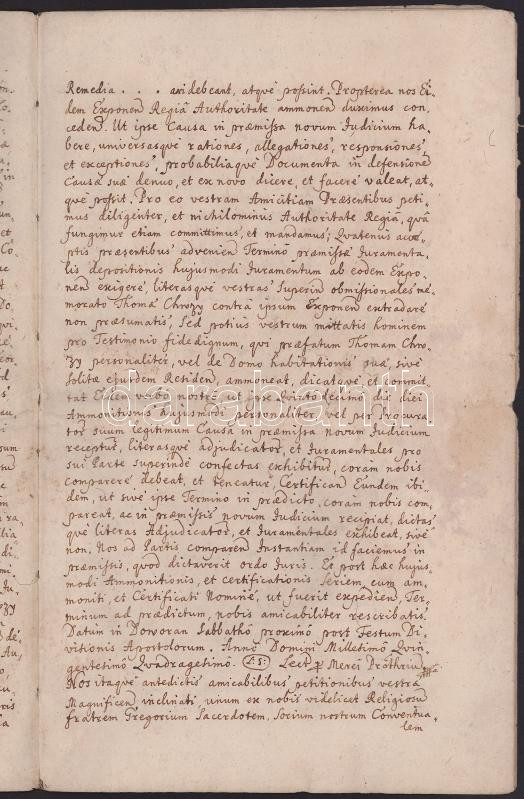 Remedia . . . avi debeant, atqué possint. Propterea nos Ei-
dem Exponen Regiâ Authoritate ammonen duximus con-
ceden. Ut ipse Causa in præmissa novum Iudicium ha-
bere, universasqué rationes, allegationes, responsiones,
et exceptiones, probabiliaqué Documenta in defensione
Causæ suæ denuo, et ex novo dicere, et facere valeat, at-
qué possit. Pro eo vestram Amicitiam Præsentibus peti-
mus diligenter, et nichilominus Authoritate Regiâ, quâ
fungimur etiam committimus, et mandamus; Quatenus acce-
ptis præsentibus advenien Terminô præmissæ Iuramenta-
lis depositionis hujusmodi Iuramentum ab eodem Expo-
nen exigere, literasqué vestras Superin obmissionales me-
morato Thomæ Chrozy contra ipsum Exponen extradare
non præsumatis, Sed potius vestrum mittatis hominem
pro Testimonio fide dignum, qui præfatum Thomam Chro-
zy personaliter, vel de Domo habitationis suæ, sivé
Solitæ ejusdem Residen, ammoneat, dicatqué et commit-
tat Eidem verbo nostrô, ut ipse Quinto decimo die diei
Ammonitionis hujusmodi personaliter, vel per Procura-
torem suum legitimum Causa in præmissa novum Iudicium
recepturus, literasqué adjudicatorias, et Iuramentales pro
sui Parte superinde confectas exhibiturus, coram nobis
comparere debeat, et teneatur, Certifican Eundem ibi-
dem, ut sivé ipse Termino in prædicto, coram nobis com-
pareat, ac in præmissis novum Iudicium recipiat, dictas-
qué literas Adjudicatorias, et Iuramentales exhibeat, sivé
non, Nos ad Partis comparen Instantiam id faciemus in
præmissis, quod dictaverit ordo Iuris. Et post hæc hujus-
modi Ammonitionis, et certificationis Seriem, cum am-
moniti, et Certificati Nominé, ut fuerit expedien, Ter-
minum ad prædictum, nobis amicabiliter rescribatis.
Datum in Dorozan Sabbathô proximô post Festum Di-
visionis Apostolorum. Annô Domini Millesimô Quin-
gentesimô Quadragesimô. L: S: Lect per Merci Prothriu
Nos itaqué antedictis amicabilibus petitionibus vestræ
Magnificen inclinati, unum ex nobis videlicet Religiosum
fratrem Gregorium Sacerdotem, Socium nostrum Conventua-
lem
darabanth